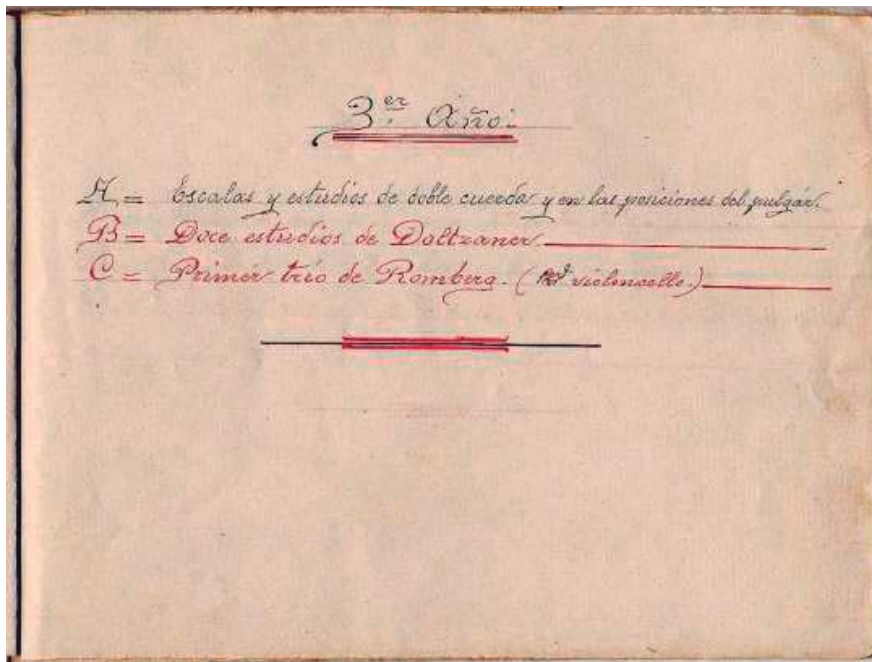 3er. Año.
A = Escalas y estudios de doble cuerda y en las posiciones del pulgár.
B = Doce estudios de Doltzaner.
C = Primér trio de Romberg. ( violoncello.)